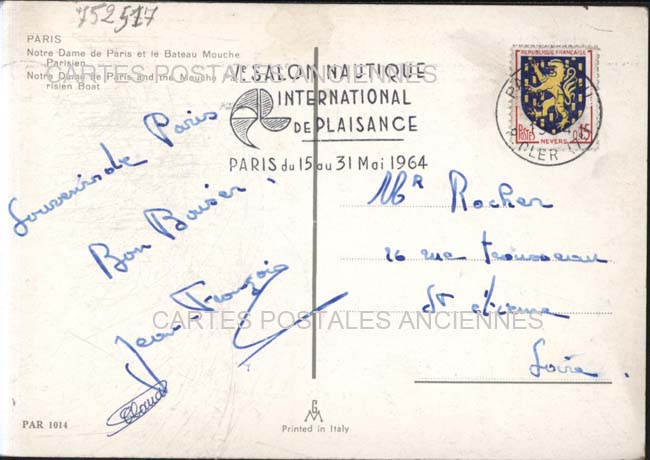 752517
PARIS
Notre Dame de Paris et le Bateau Mouche
Parisien
Notre Dame de Paris and the Mouche
risien Boat
CARTES POSTALES ANCIENNES
SALON NAUTIQUE
INTERNATIONAL
DE PLAISANCE
PARIS du 15 au 31 Mai 1964
REPUBLIQUE FRANÇAISE
POSTES 15
NEVERS
Souvenirs de Paris
Bon Baiser
Jean-François
Claude
Mr Rocher
26 rue Trousseau
St étienne
Loire.
CARTES POSTALES ANCIENNES
PAR 1014
Printed in Italy